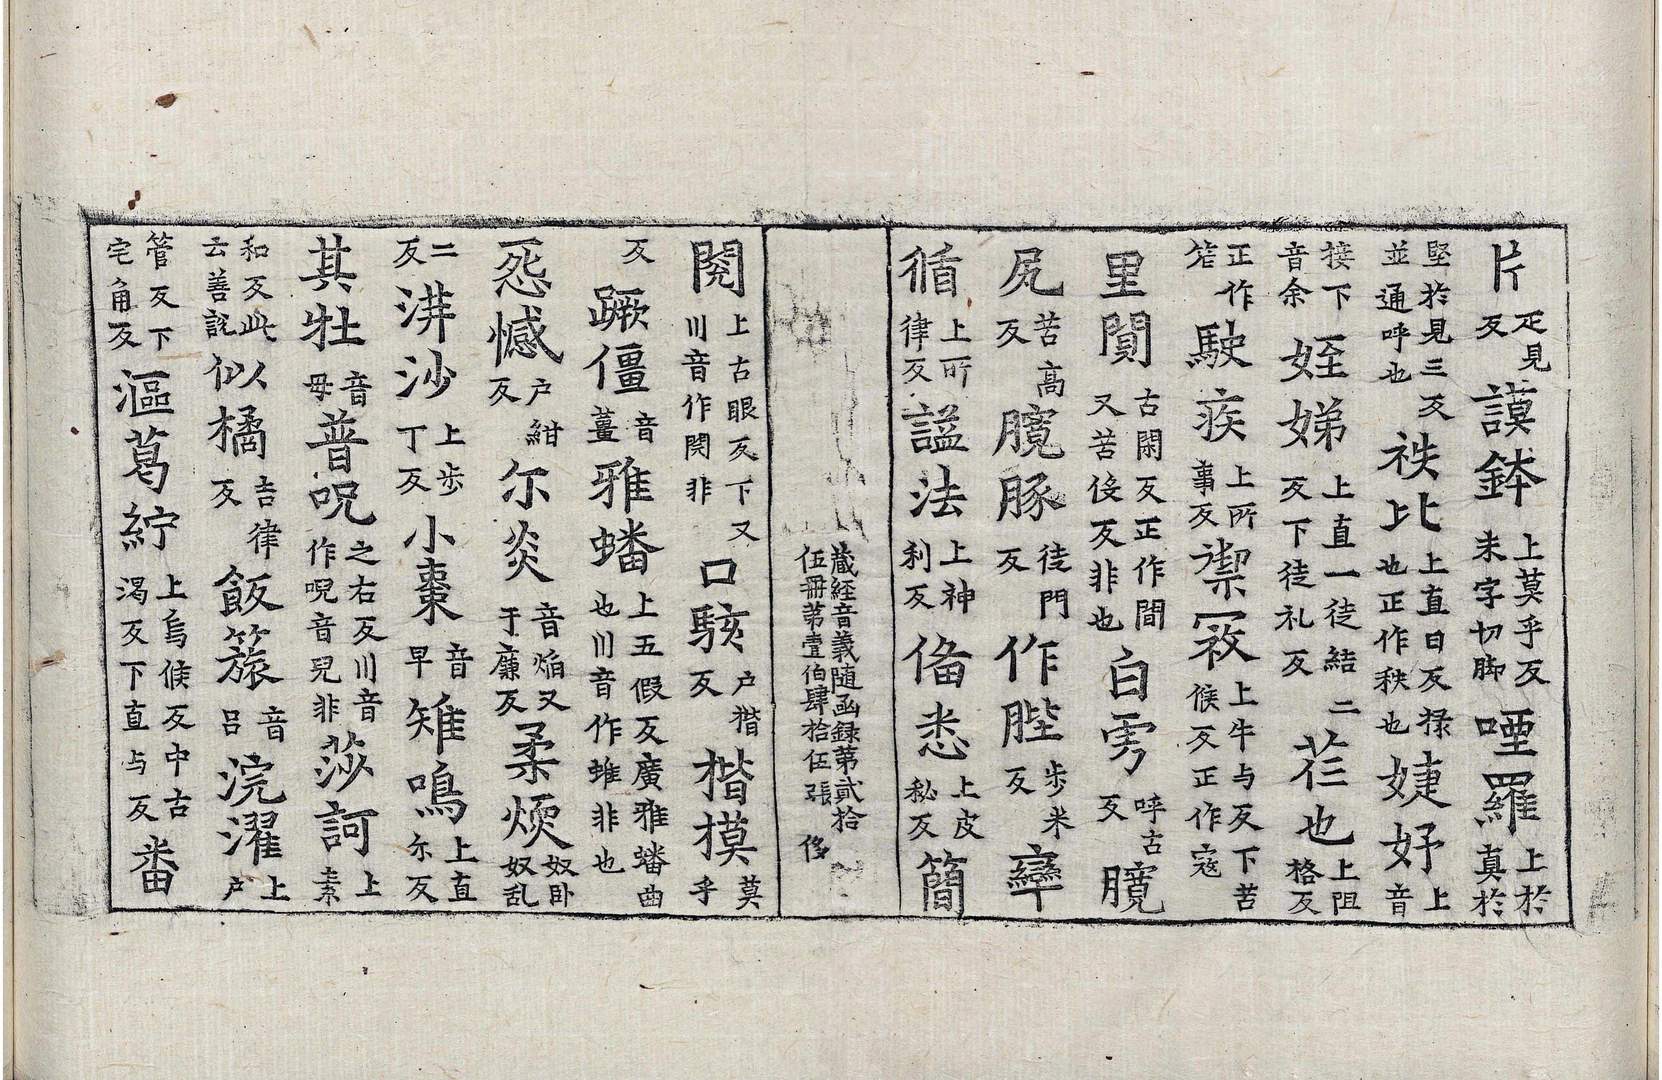 片疋見反謨鉢上莫乎反未字切脚㖶羅上於真於
堅於見三反並通呼也袟比上直日反䘵也正作秩也婕妤上音
接下音余姪娣上直一徒結二反下徒礼反茬也上阻格反
正作笮駛疾上所事反禦寇上牛与反下苦候反正作寇
里閴古閑反正作間又苦伇反非也白雱呼古反臗
尻苦高反臗豚徒門反作䏶步米反䜌
循上所律反謚法上神利反俻悉上皮秘反簡
藏經音義随函録第貳拾伍冊第壹伯肆拾伍張
閱上古眼反下又川音作関非口駭户楷反楷摸莫乎
反蹶僵音薑雅蟠上五假反廣雅蟠曲也川音作蟕非也
惌憾户紺反尓炎音焰又于廉反柔㷪奴卧奴乱
二反洴沙上步丁反小棗音早雉鳴上直尓反
其牡音母普呪之右反川音作唲音兒非莎訶上素
和反此云善說似以橘吉律反飯䈰音吕浣濯上户
管反下宅角反漚葛紵上烏候反中古渴反下直与反番